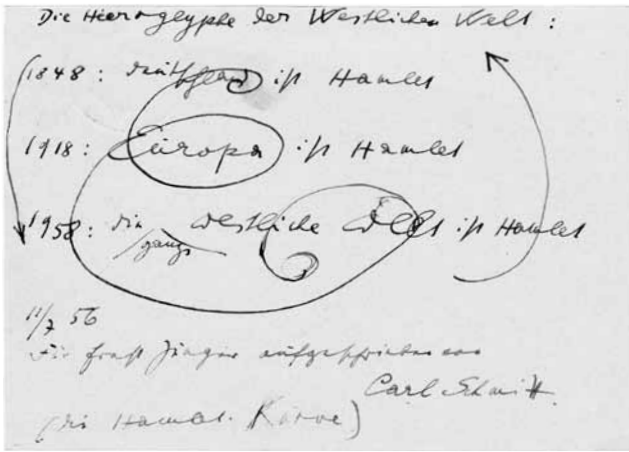 Die Hieroglyphe der Westlichen Welt:
1848: deutschland ist Hamlet
1918: Europa ist Hamlet
1958: die westliche Welt ist Hamlet
ganze
11/7 56
Für Ernst Jünger aufgeschrieben von
Carl Schmitt
(die Hamlet-Kurve)